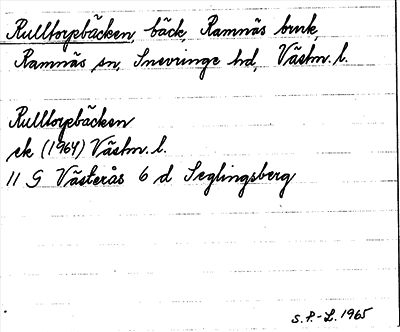 Rulltorpbäcken, bäck, Ramnäs bruk,
Ramnäs sn, Snevringe hd, Västm. l.
Rulltorpbäcken
ek (1964) Västm. l.
11 G Västerås 6 d Seglingsberg
S.P.-L. 1965